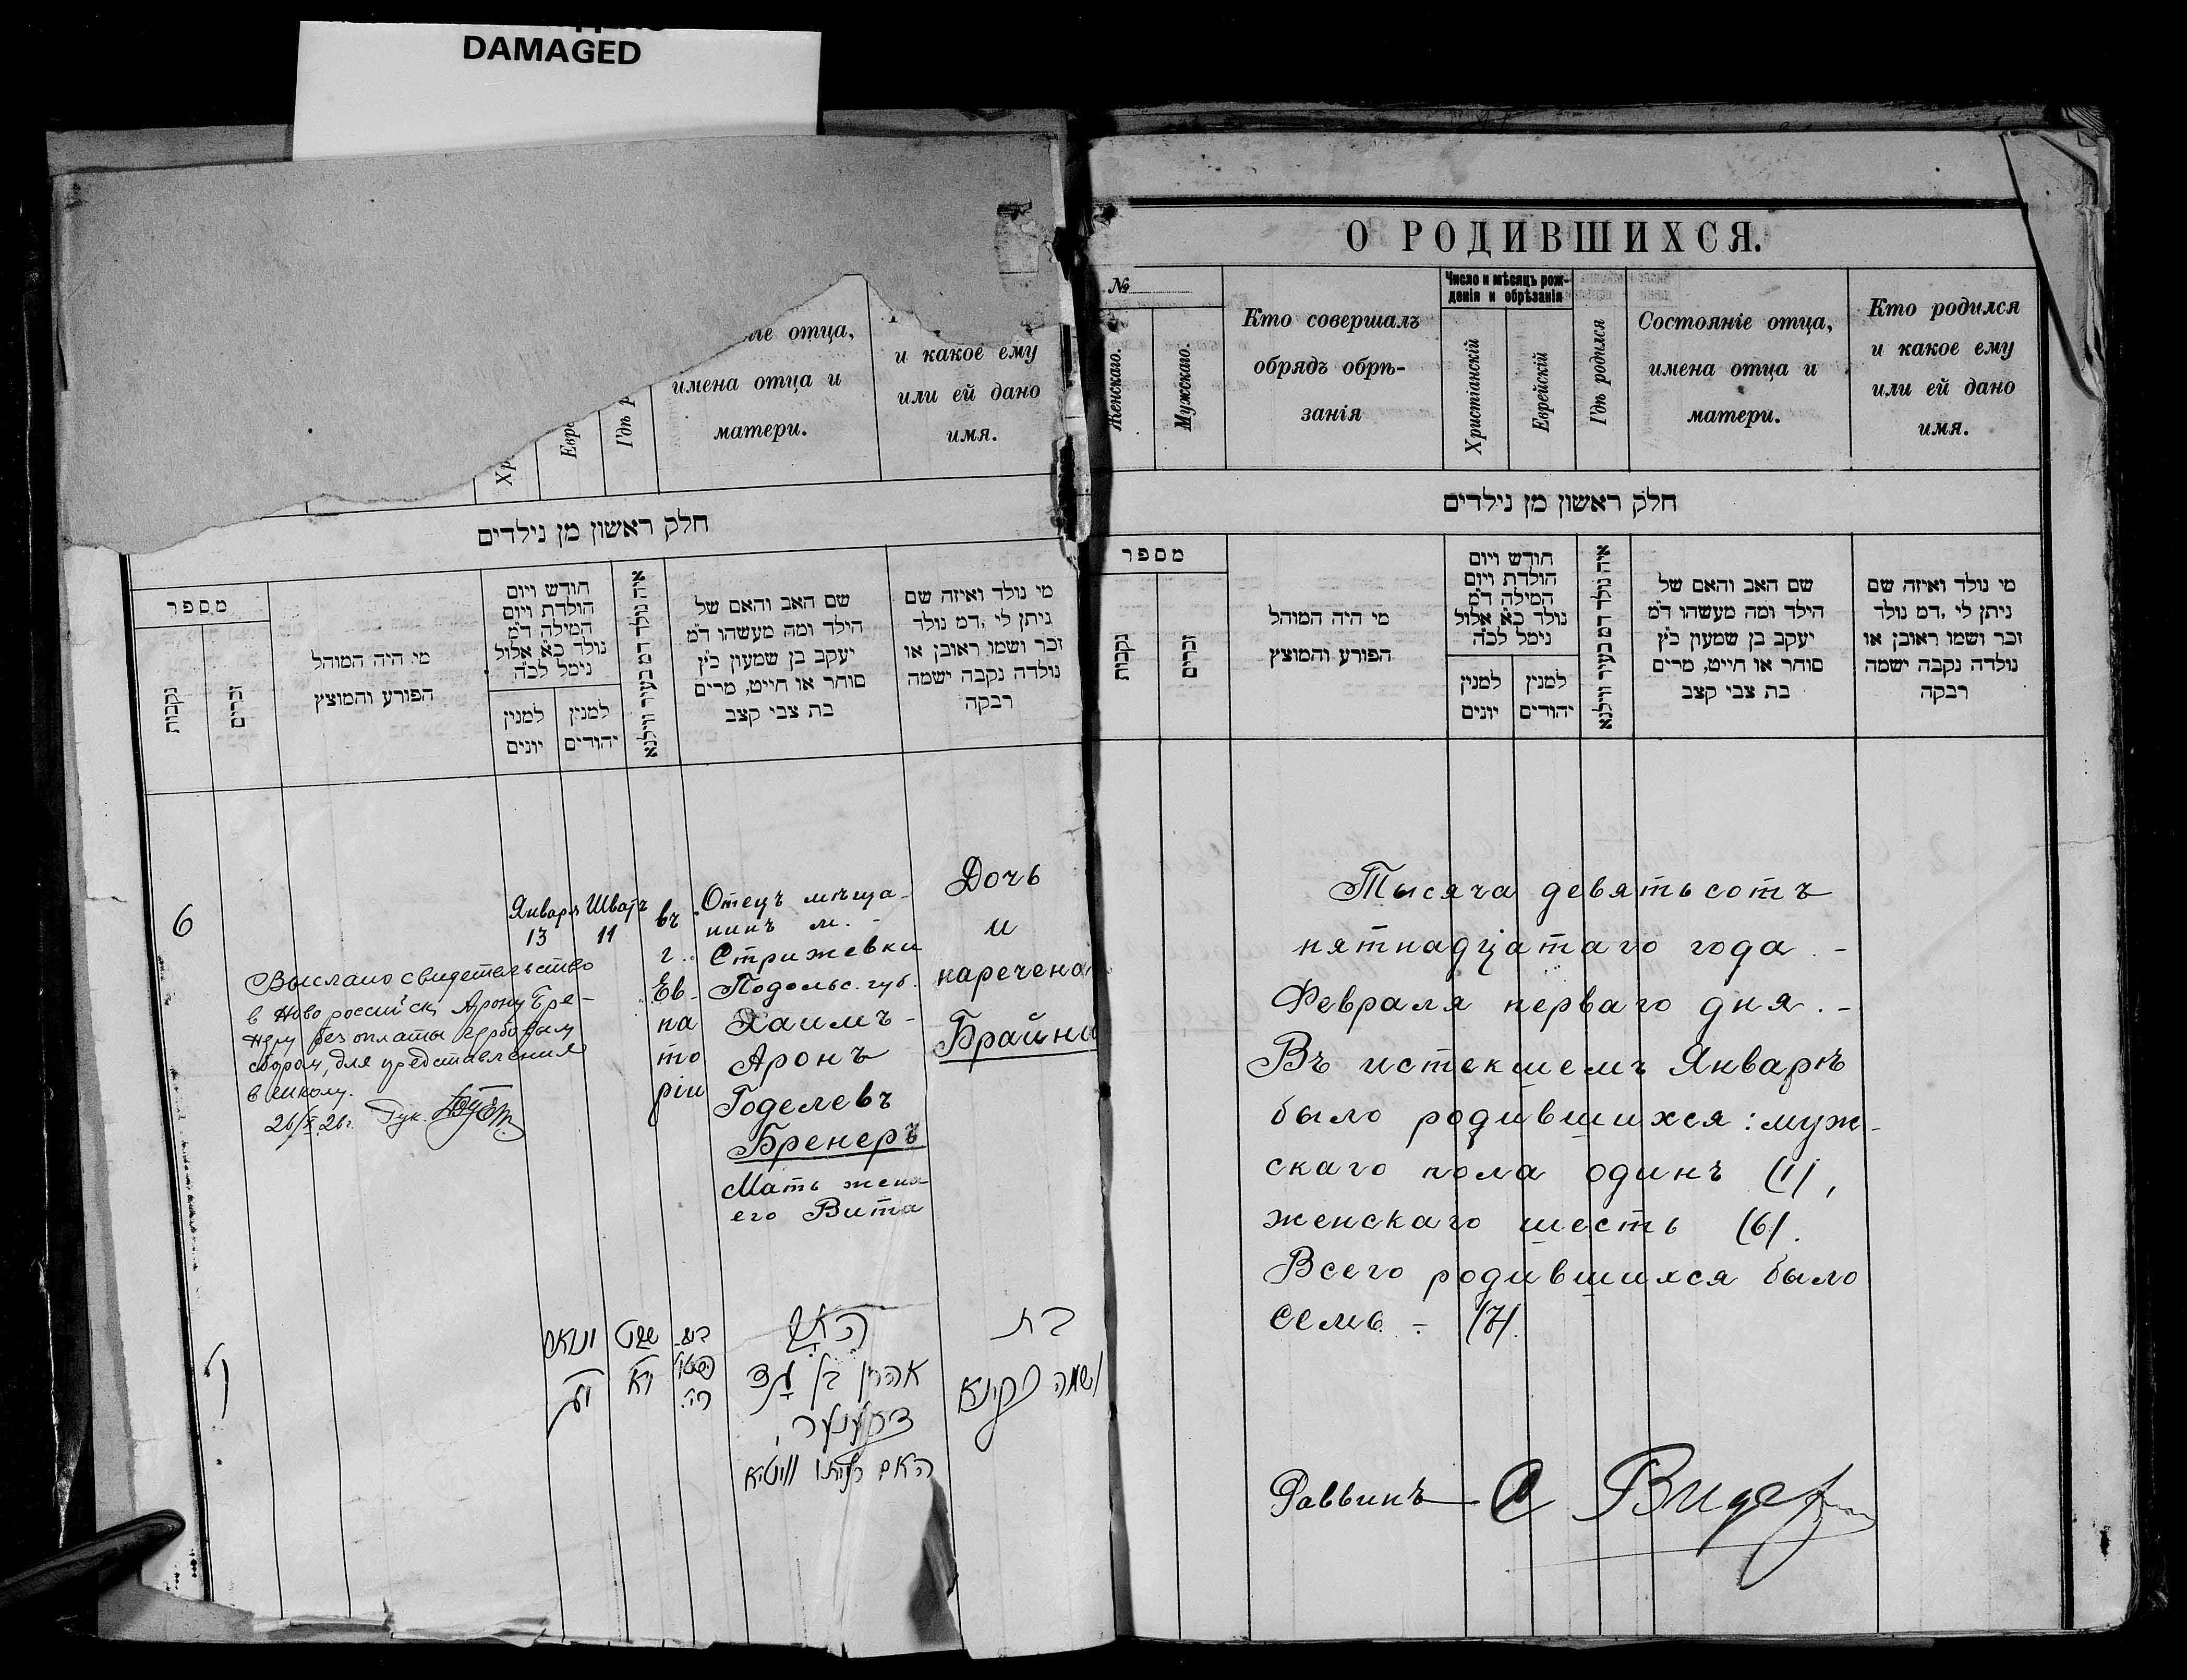 DAMAGED
отца,
имена отца и
матери.
и какое ему
или ей дано
имя.
חלק ראשון מן נילדים
מספר
נקבות
זכרים
מי היה המוהל
הפורע והמוצץ
חודש ויום
הולדת ויום
המילה ד״מ
נולד כ״א אלול
נימל לכ״ה
למנין
יונים
למנין
יהודים
איה נולד דמ בעיר ווילנא
שם האב והאם של
הילד ומה מעשהו ד״מ
יעקב בן שמעון כ״ץ
סוחר או חייט, מרים
בת צבי קצב
מי נולד ואיזה שם
ניתן לי ,דמ נולד
זכר ושמו ראובן או
נולדה נקבה ישמה
רבקה
6
Января
13
Шватъ
11
въ
г.
Ев-
па
то
ріи
Отецъ мѣща-
нинъ м.
Стрижевки
Подольс. губ.
Хаимъ-
Аронъ
Годелевъ
Бренеръ
Мать жена
его Вита
Дочь
и
наречена
Брайна
Выслано свидетельство
в Новороссийск Арону Бре-
неру без оплаты гербовым
сбором, для представления
в школу.
26/X 26г.
יאנואר
שבט
יא
האב
אהרן בן
האם
וויטא
בת
ושמה
О РОДИВШИХСЯ.
№
Женскаго.
Мужскаго.
Кто совершалъ
обрядъ обрѣ-
занія
Число и мѣсяцъ рож-
денія и обрѣзанія
Христіанскій
Еврейскій
Гдѣ родился
Состояніе отца,
имена отца и
матери.
Кто родился
и какое ему
или ей дано
имя.
חלק ראשון מן נילדים
מספר
נקבות
זכרים
מי היה המוהל
הפורע והמוצץ
חודש ויום
הולדת ויום
המילה ד״מ
נולד כ״א אלול
נימל לכ״ה
למנין
יונים
למנין
יהודים
איה נולד דמ בעיר ווילנא
שם האב והאם של
הילד ומה מעשהו ד״מ
יעקב בן שמעון כ״ץ
סוחר או חייט, מרים
בת צבי קצב
מי נולד ואיזה שם
ניתן לי ,דמ נולד
זכר ושמו ראובן או
נולדה נקבה ישמה
רבקה
Тысяча девятьсотъ
пятнадцатаго года. -
Февраля перваго дня. -
Въ истекшемъ Январѣ
было родившихся: муж-
скаго пола одинъ (1),
женскаго шесть (6).
Всего родившихся было
семь - (7).
Раввинъ